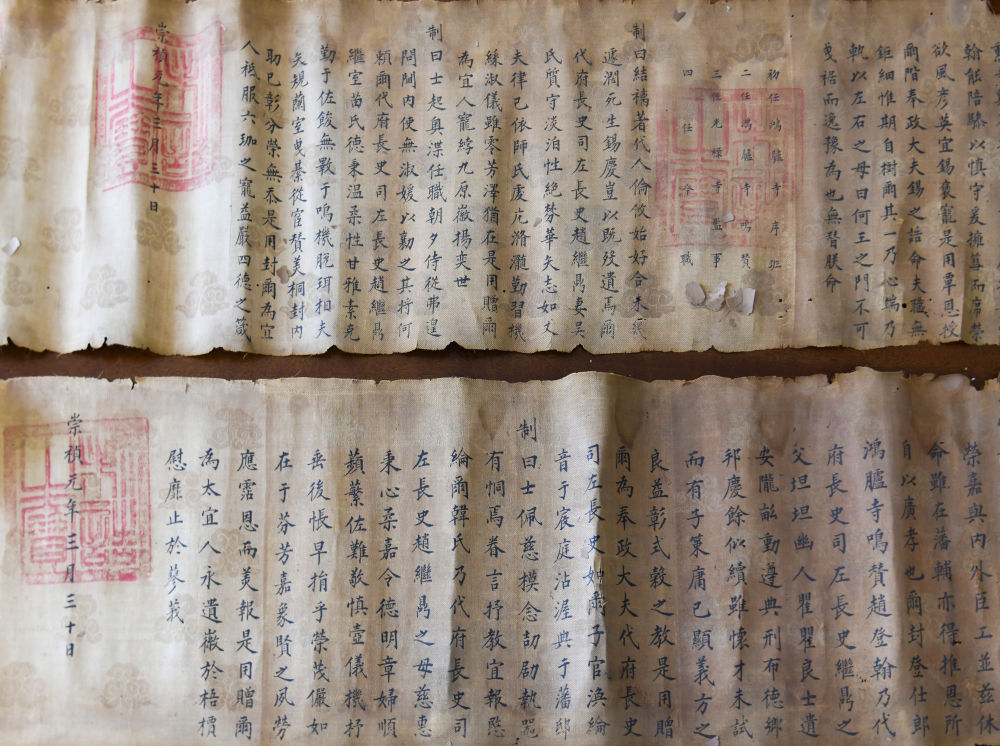 翰能陪驂以慎守爰擁篲而席榮
欲風彥英宜錫褒寵是用覃恩授
爾階奉政大夫錫之誥命夫職無
鉅細惟期自樹爾其一乃心端乃
軌以左右之毋曰何王之門不可
曳裾而逸豫為也無替朕命
初任鴻臚寺序班
二任鴻臚寺鳴贊
三任光祿寺監事
四任今職
制曰結褵著代人倫攸始好合未幾
遽溯死生錫慶豈以既歿遺焉爾
代府長史司左長史趙繼鼎妻吳
氏質守淡泊性絕芬華矢志如丈
夫律己依師氏處庀滫瀡勤習機
絲淑儀雖零芳澤猶在是用贈爾
為宜人寵綍九原徽揚奕世
制曰士起奧渫任職朝夕侍從弗遑
問閫內使無淑媛以勷之其將何
賴爾代府長史司左長史趙繼鼎
繼室苗氏德秉溫柔性甘雅素克
勤于佐餕無斁于鳴機脫珥相夫
矢規蘭室曳綦從宦贊美桐封內
助已彰分榮無忝是用封爾為宜
人祇服六珈之寵益嚴四德之箴
崇禎元年三月三十日
榮嘉與內外臣工並茲休
命雖在藩輔亦得推恩所
自以廣孝也爾封登仕郎
鴻臚寺鳴贊趙登翰乃代
府長史司左長史繼鼎之
父坦坦幽人瞿瞿良士遺
安隴畝動遵典刑布德鄉
邦慶餘似續雖懷才未試
而有子策庸已顯義方之
良益彰式穀之教是用贈
爾為奉政大夫代府長史
司左長史如爾子官渙綸
音于宸庭沾渥典于藩邸
制曰士佩慈摸念劼劬執𠾖
有恫焉眷言抒教宜報愍
綸爾韓氏乃代府長史司
左長史趙繼鼎之母慈惠
秉心柔嘉令德明章婦順
蘋蘩佐難敬慎壼儀機杼
垂後悵早捐乎榮茂儼如
在于芬芳嘉象賢之夙勞
應霑恩而美報是用贈爾
為太宜人永遺徽於梧檟
慰靡止於蓼莪
崇禎元年三月三十日